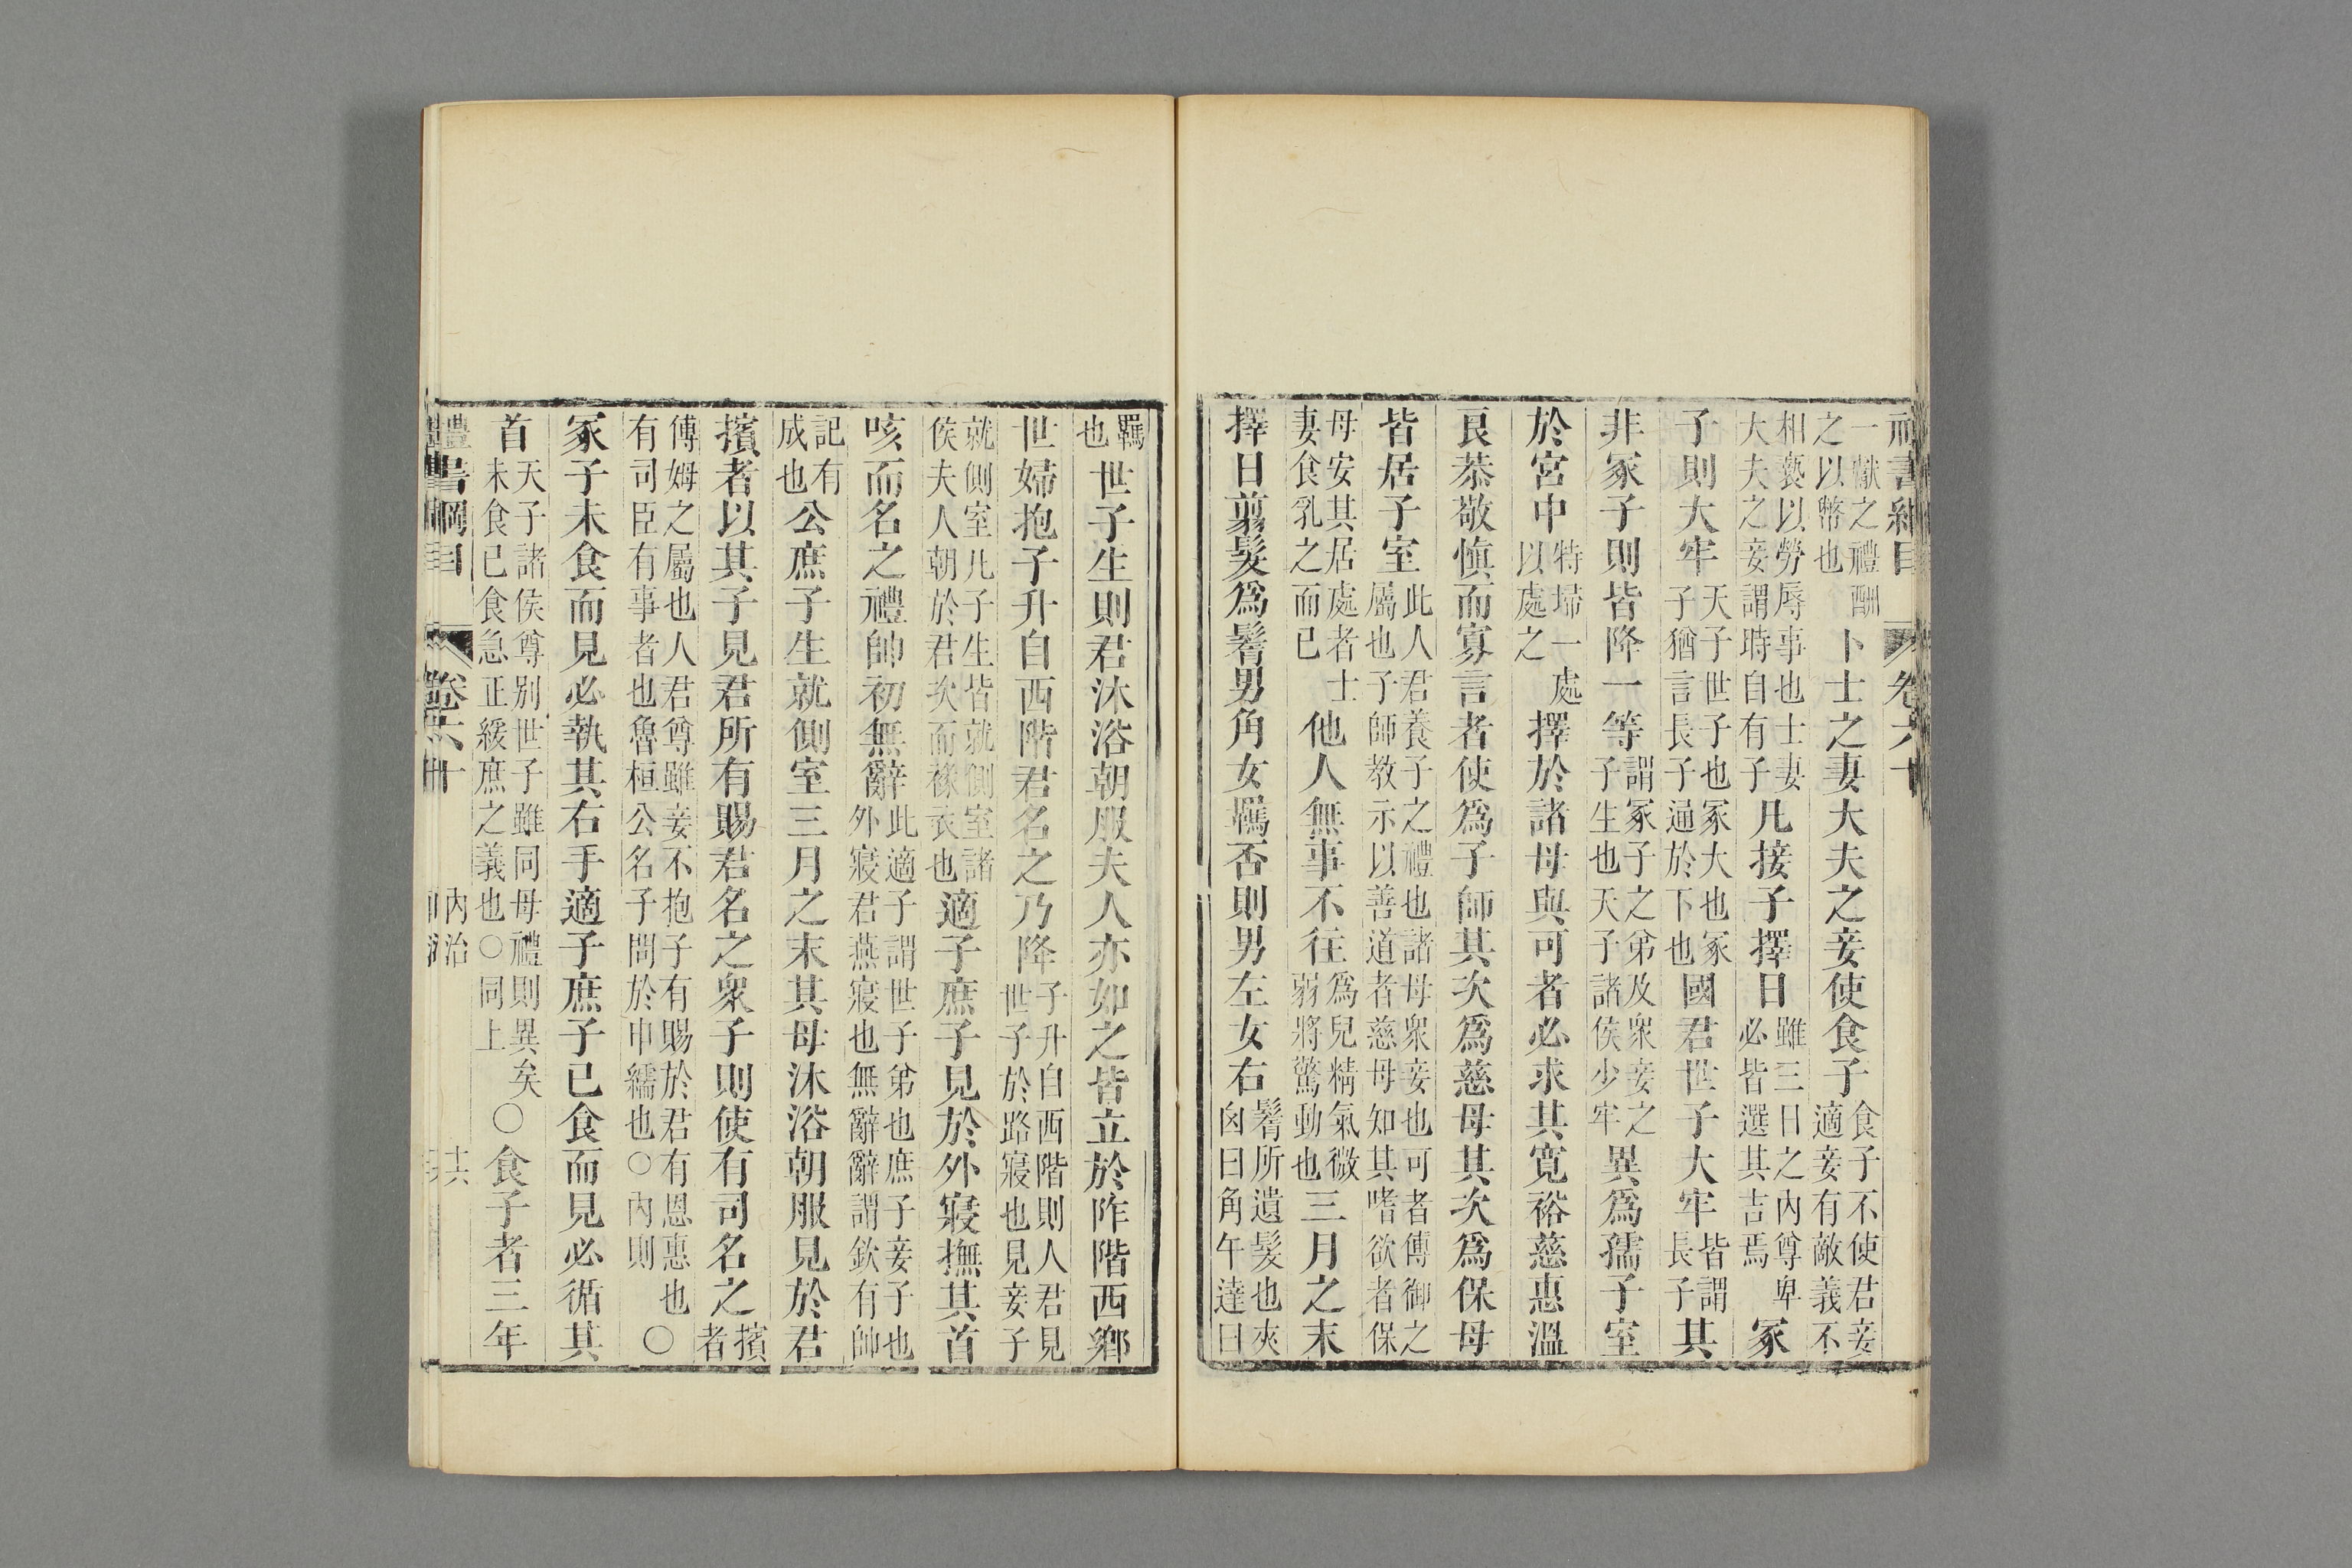 書綱目　卷六十
一獻之禮酬之以幣也卜士之妻大夫之妾使食子食子不使君妾適妾有敵義不
相褻以勞辱事也士妻大夫之妾謂時自有子凡接子擇日雖三日之內尊卑必皆選其吉焉冢
子則大牢天子世子也冢大也冢子猶言長子通於下也國君世子大牢皆謂長子其
非冢子則皆降一等謂冢子之弟及衆妾之子生也天子諸侯少牢異爲孺子室
於宮中特埽一處以處之擇於諸母與可者必求其寬裕慈惠溫
良恭敬慎而寡言者使爲子師其次爲慈母其次爲保母
皆居子室此人君養子之禮也諸母衆妾也可者傅御之屬也子師教示以善道者慈母知其嗜欲者保
母安其居處者士妻食乳之而已他人無事不往爲兒精氣微弱將驚動也三月之末
擇日翦髮爲鬌男角女羈否則男左女右鬌所遺髮也夾囟曰角午達曰
羈也世子生則君沐浴朝服夫人亦如之皆立於阼階西鄉
世婦抱子升自西階君名之乃降子升自西階則人君見世子於路寢也見妾子
就側室凡子生皆就側室諸侯夫人朝於君次而褖衣也適子庶子見於外寢撫其首
咳而名之禮帥初無辭此適子謂世子弟也庶子妾子也外寢君燕寢也無辭辭謂欽有帥
記有成也公庶子生就側室三月之末其母沐浴朝服見於君
擯者以其子見君所有賜君名之衆子則使有司名之擯者
傅姆之屬也人君尊雖妾不抱子有賜於君有恩惠也有司臣有事者也魯桓公名子問於申繻也○內則○
冢子未食而見必執其右手適子庶子已食而見必循其
首天子諸侯尊別世子雖同母禮則異矣未食已食急正緩庶之義也○同上○食子者三年
禮書綱目　卷六十　內治　十六